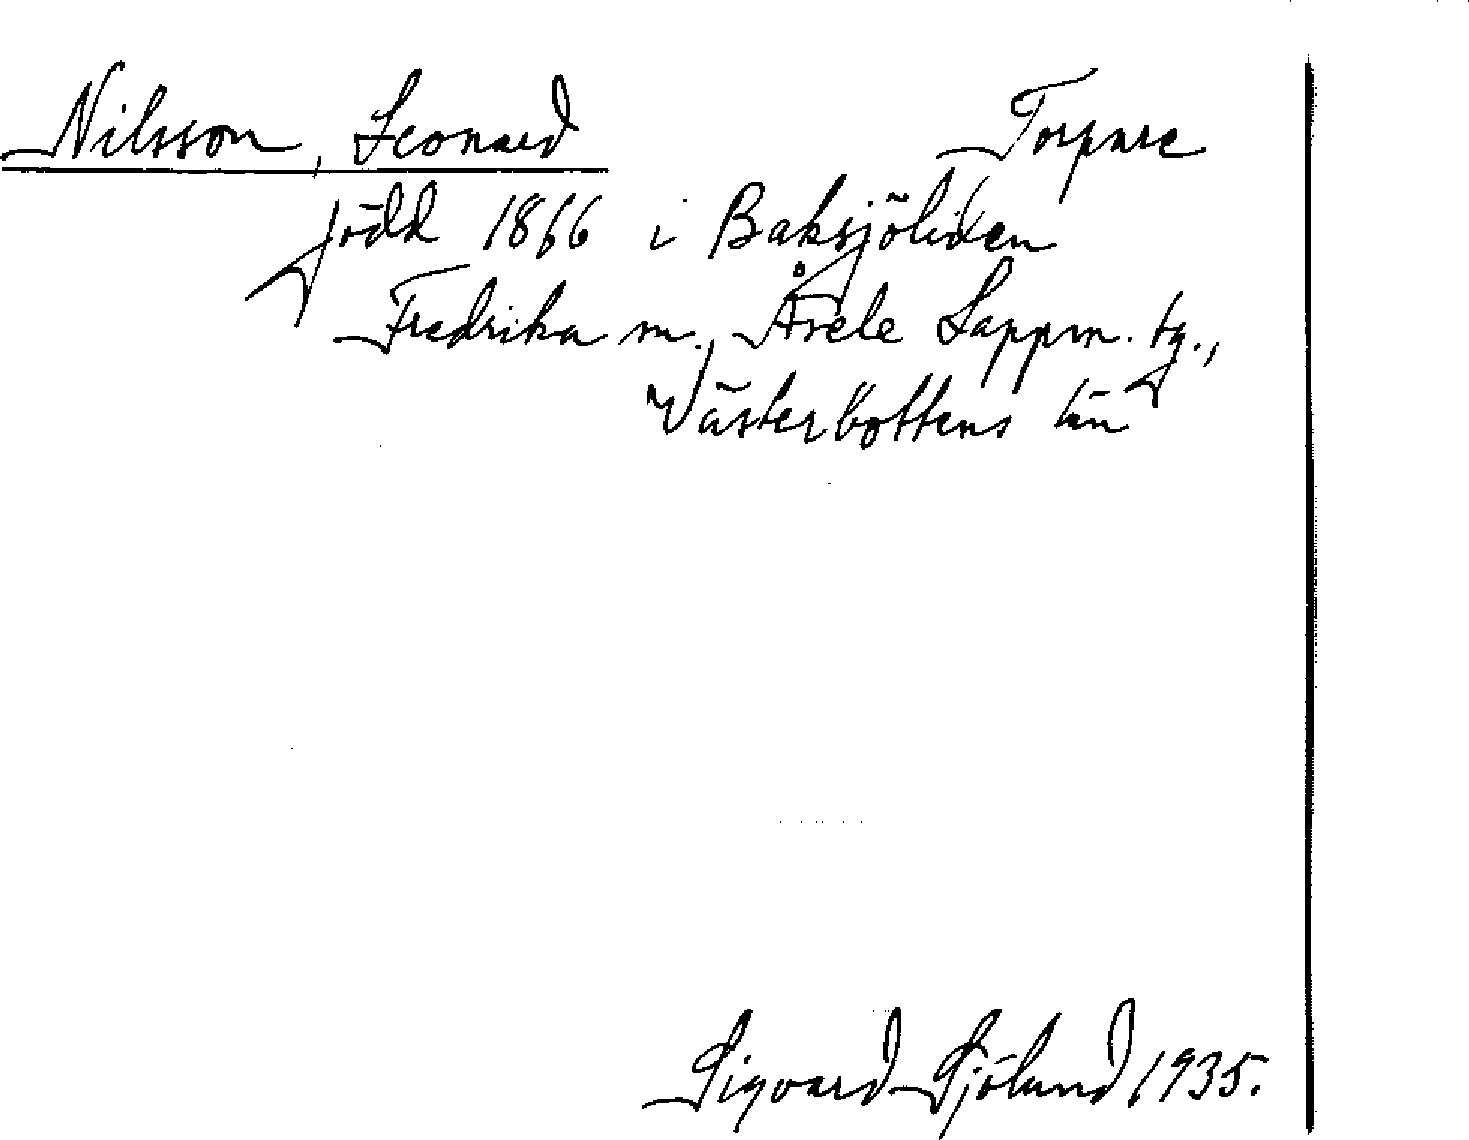 Nilsson, Leonard Torpare
född 1866 i Baksjöliden
Fredrika sn., Åsele Lappm. tg.,
Västerbottens län
Sigvard Sjölund 1935.